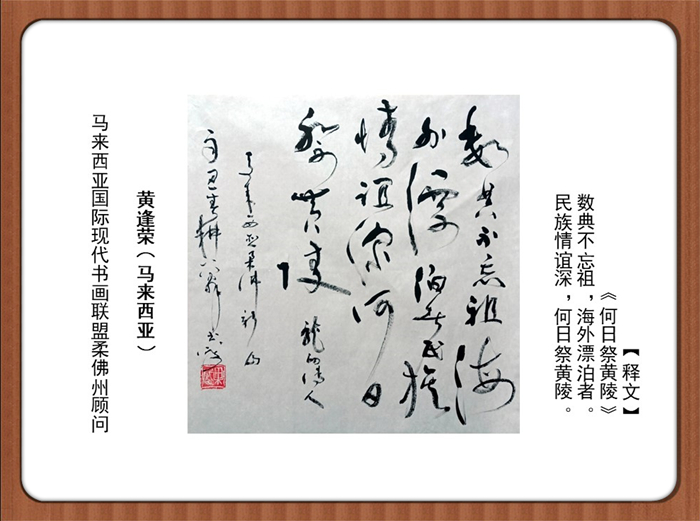 【释文】
《何日祭黄陵》
数典不忘祖，海外漂泊者。
民族情谊深，何日祭黄陵。
数典不忘祖海
外漂泊者民族
情谊深何日
祭黄陵 龙的传人
马来西亚柔佛新山
黄逢荣（马来西亚）
马来西亚国际现代书画联盟柔佛州顾问